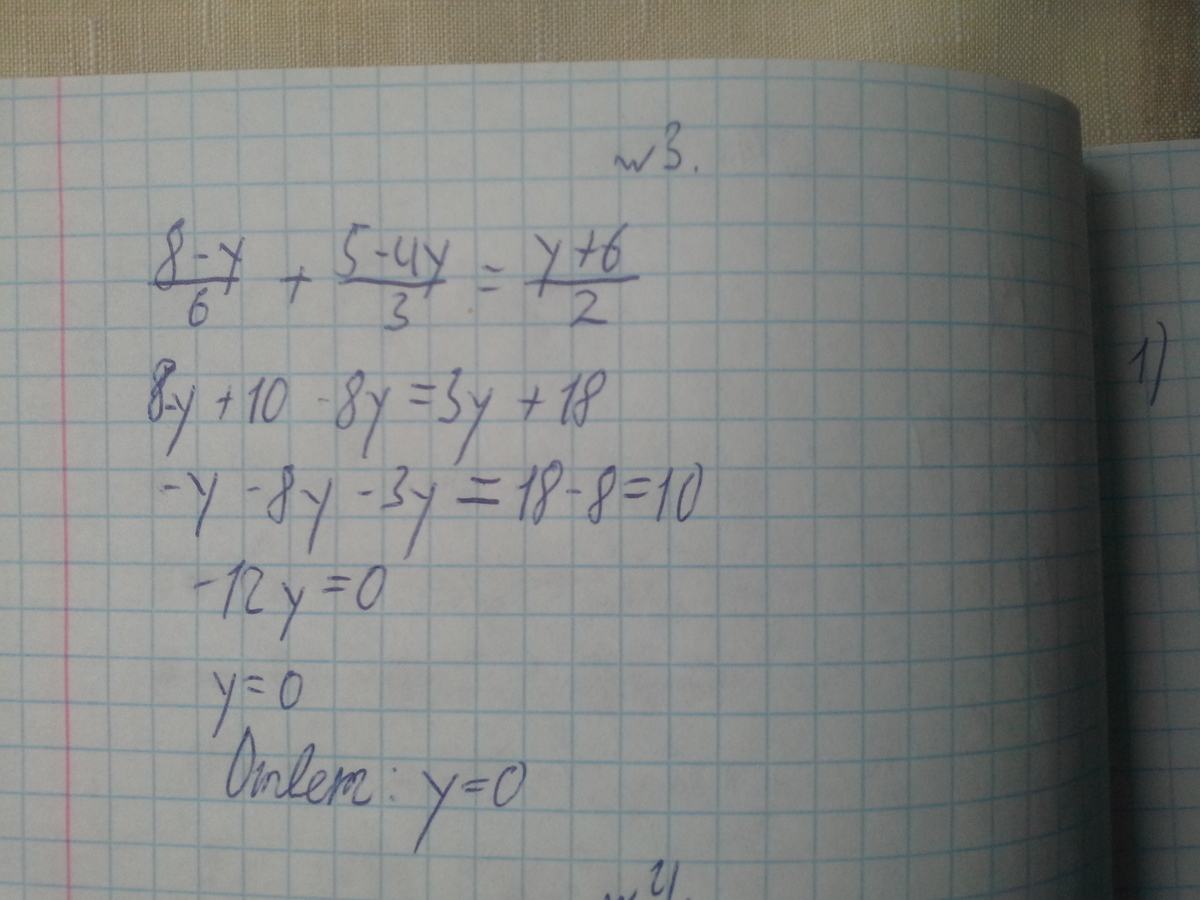 №3.
8-y/6 + 5-4y/3 = y+6/2
8-y+10-8y=3y+18
-y-8y-3y=18-8=10
-12y=0
y=0
Ответ: y=0
№4.
1)